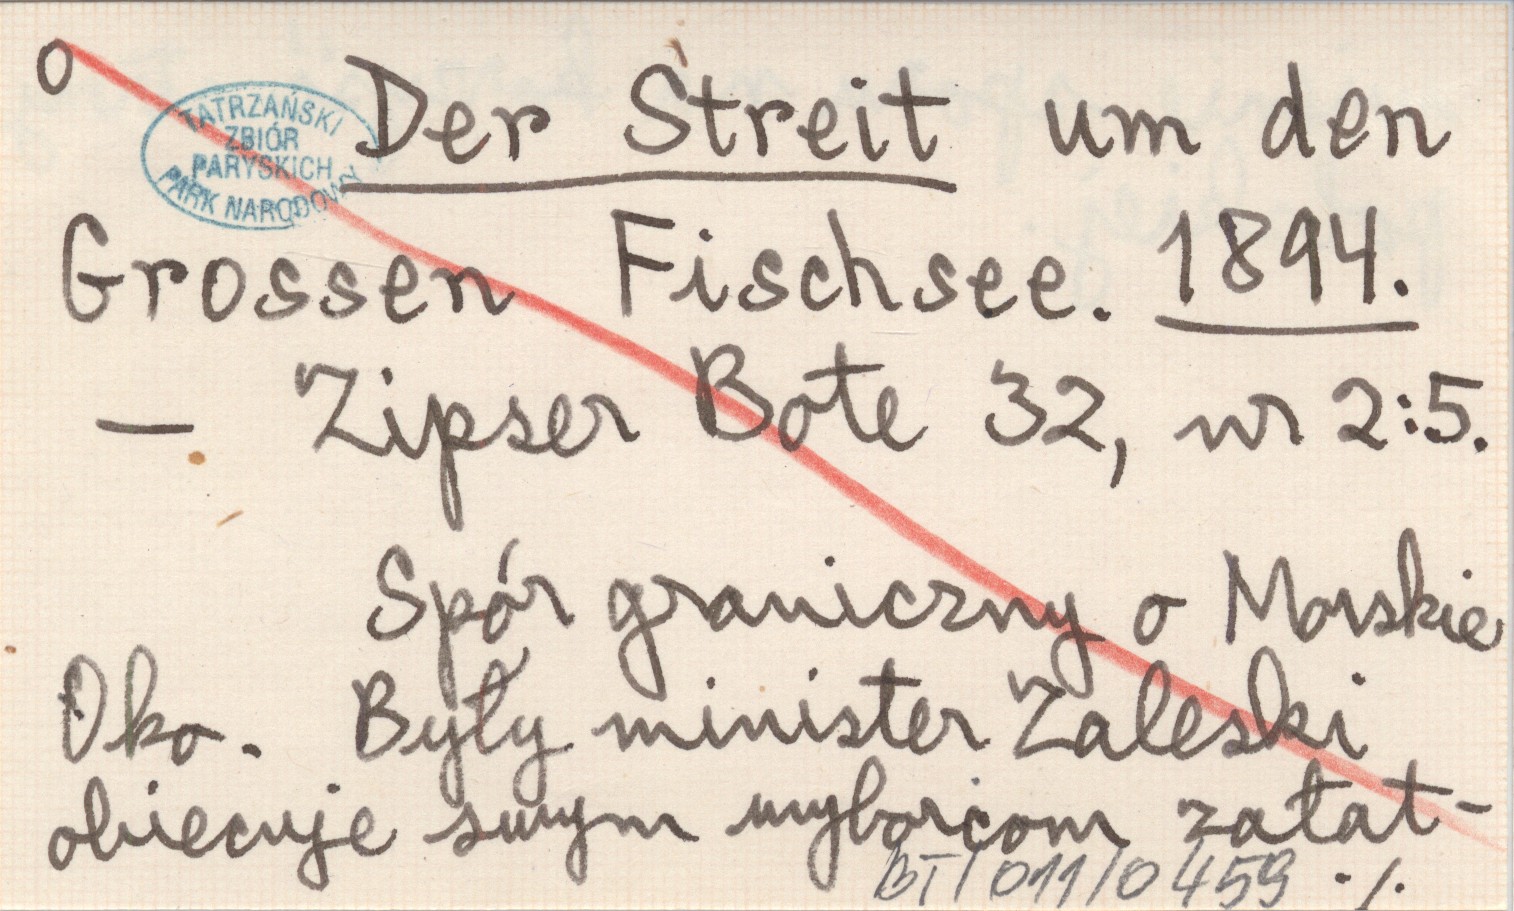 o
TATRZAŃSKI
ZBIÓR
PARYSKICH
PARK NARODOWY
Der Streit um den
Grossen Fischsee. 1894.
— Zipser Bote 32, nr 2:5.
Spór graniczny o Morskie
Oko. Były minister Zaleski
obiecuje swym wyborcom załat-
BT/011/0459 ./.